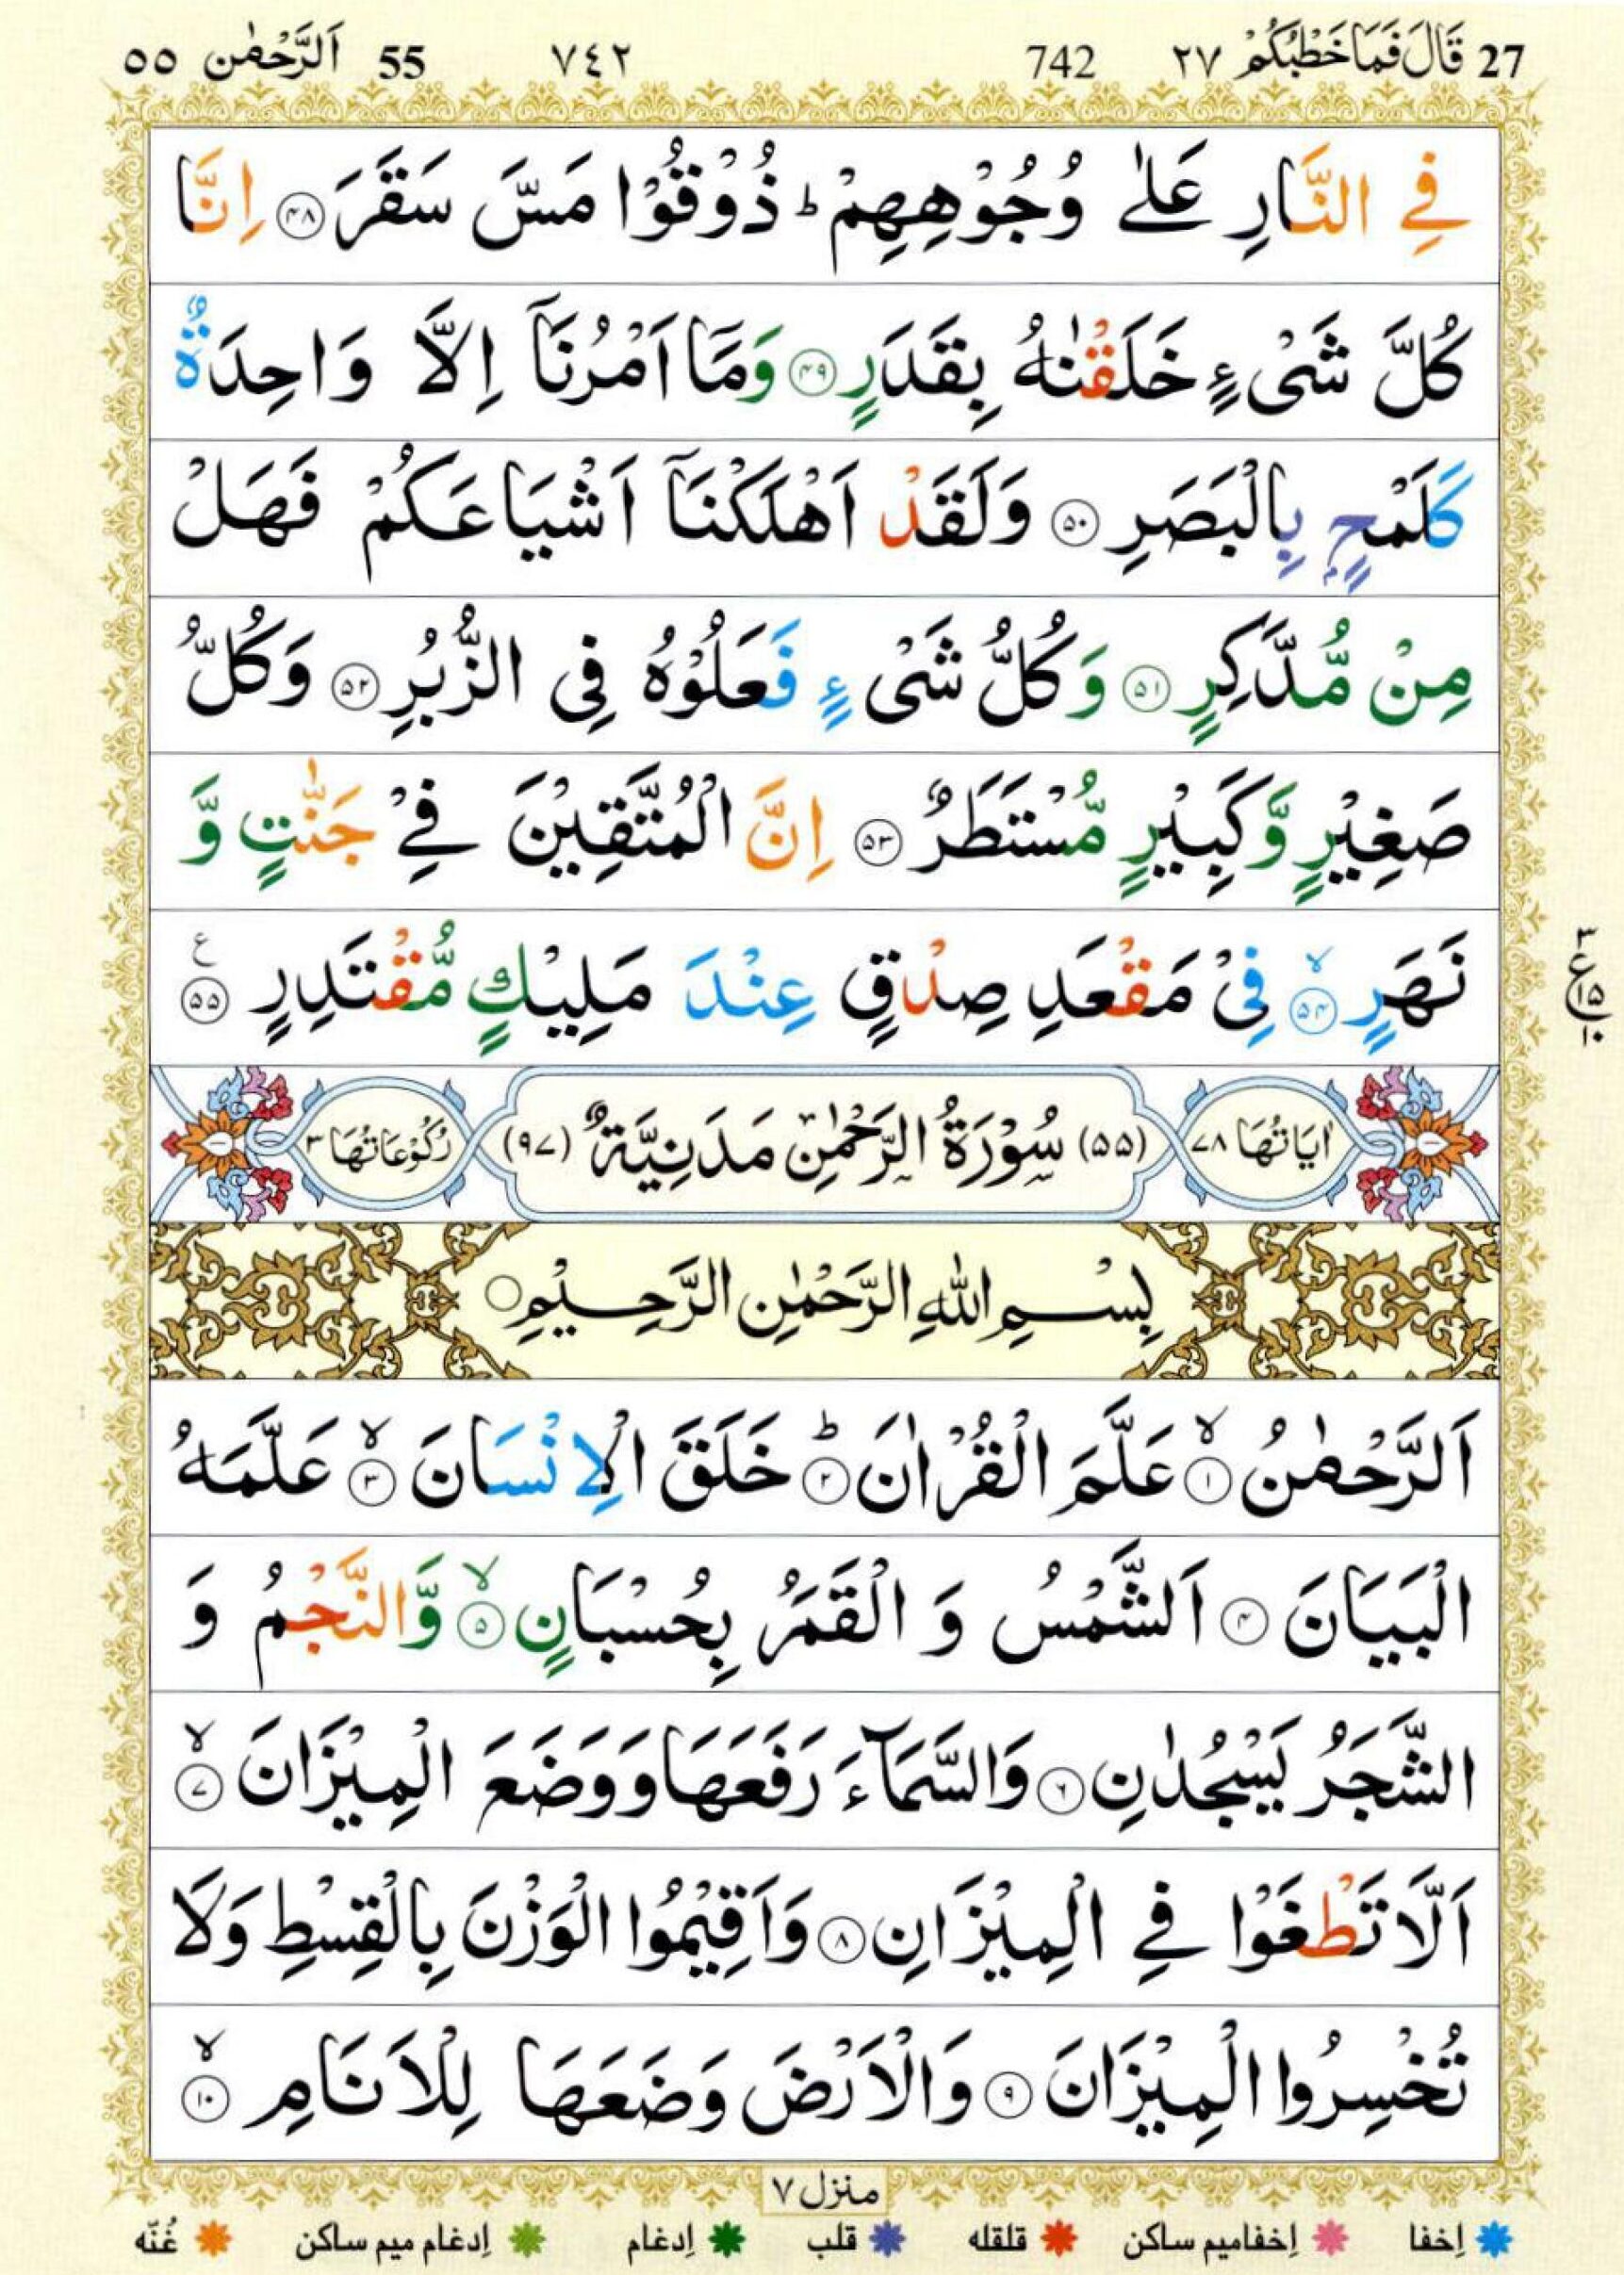 27 قَالَ فَمَا خَطْبُكُمْ ٢٧ 742 ٧٤٢ 55 اَلرَّحْمٰن ٥٥
فِي النَّارِ عَلٰى وُجُوْهِهِمْ ؕ ذُوْقُوْا مَسَّ سَقَرَ ۴۸ اِنَّا
كُلَّ شَیْءٍ خَلَقْنٰهُ بِقَدَرٍ ۴۹ وَمَاۤ اَمْرُنَاۤ اِلَّا وَاحِدَةٌ
كَلَمْحٍۭ بِالْبَصَرِ ۵۰ وَلَقَدْ اَهْلَكْنَاۤ اَشْيَاعَكُمْ فَهَلْ
مِنْ مُّدَّكِرٍ ۵۱ وَكُلُّ شَیْءٍ فَعَلُوْهُ فِی الزُّبُرِ ۵۲ وَكُلُّ
صَغِيْرٍ وَّكَبِيْرٍ مُّسْتَطَرٌ ۵۳ اِنَّ الْمُتَّقِيْنَ فِیْ جَنّٰتٍ وَّ
نَهَرٍ ۙ ۵۴ فِیْ مَقْعَدِ صِدْقٍ عِنْدَ مَلِيْكٍ مُّقْتَدِرٍ ۵۵ ع
٣ ع ۱۵ ۱۰
اٰيَاتُهَا ٧٨ (۵۵) سُوْرَةُ الرَّحْمٰنِ مَدَنِيَّةٌ (۹۷) رُكُوْعَاتُهَا ۳
بِسْمِ اللّٰهِ الرَّحْمٰنِ الرَّحِيْمِ
اَلرَّحْمٰنُ ۙ ۱ عَلَّمَ الْقُرْاٰنَ ؕ ۲ خَلَقَ الْاِنْسَانَ ۙ ۳ عَلَّمَهُ
الْبَيَانَ ۴ اَلشَّمْسُ وَ الْقَمَرُ بِحُسْبَانٍ ۙ ۵ وَّالنَّجْمُ وَ
الشَّجَرُ يَسْجُدٰنِ ۶ وَالسَّمَآءَ رَفَعَهَا وَوَضَعَ الْمِيْزَانَ ۙ ۷
اَلَّا تَطْغَوْا فِی الْمِيْزَانِ ۸ وَاَقِيْمُوا الْوَزْنَ بِالْقِسْطِ وَلَا
تُخْسِرُوا الْمِيْزَانَ ۹ وَالْاَرْضَ وَضَعَهَا لِلْاَنَامِ ۙ ۱۰
منزل ۷
اِخفا اِخفامیم ساکن قلقله قلب اِدغام اِدغام میم ساکن غُنّه